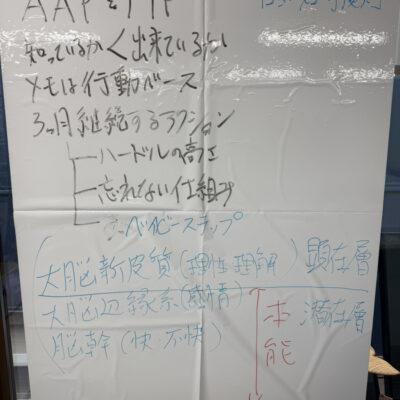 知っているかく出来ているか
メモは行動ベース
3ヶ月継続するアクション
ハードルの高さ
忘れない仕組み
ベイビーステップ
大脳新皮質(理性・理解) 顕在層
大脳辺縁系(感情)
脳幹(快・不快)
本能
潜在層